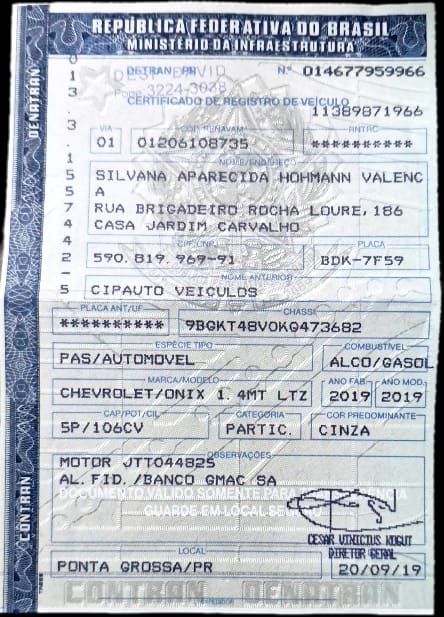 REPÚBLICA FEDERATIVA DO BRASIL
MINISTÉRIO DA INFRAESTRUTURA
DETRAN - PR Nº 014677959966
DESP. DAVID
Fone 3224-3038
CERTIFICADO DE REGISTRO DE VEÍCULO
11389871966
VIA CÓD. RENAVAM RNTRC
01 01206108735 **********
NOME/ENDEREÇO
SILVANA APARECIDA HOHMANN VALENC
A
RUA BRIGADEIRO ROCHA LOURE,186
CASA JARDIM CARVALHO
CPF/CNPJ PLACA
590.819.969-91 BDK-7F59
NOME ANTERIOR
CIPAUTO VEICULOS
PLACA ANT/UF CHASSI
********** 9BGKT48V0KG473682
ESPÉCIE TIPO COMBUSTÍVEL
PAS/AUTOMOVEL ALCO/GASOL
MARCA/MODELO ANO FAB. ANO MOD.
CHEVROLET/ONIX 1.4MT LTZ 2019 2019
CAP/POT/CIL CATEGORIA COR PREDOMINANTE
5P/106CV PARTIC. CINZA
OBSERVAÇÕES
MOTOR JTT044825
AL.FID./BANCO GMAC SA
DOCUMENTO VÁLIDO SOMENTE PARA TRANSFERÊNCIA
GUARDE EM LOCAL SEGURO
CESAR VINICIUS KOGUT
DIRETOR GERAL
LOCAL DATA
PONTA GROSSA/PR 20/09/19
CONTRAN DENATRAN
EXPEDIDOR
DENATRAN
CONTRAN